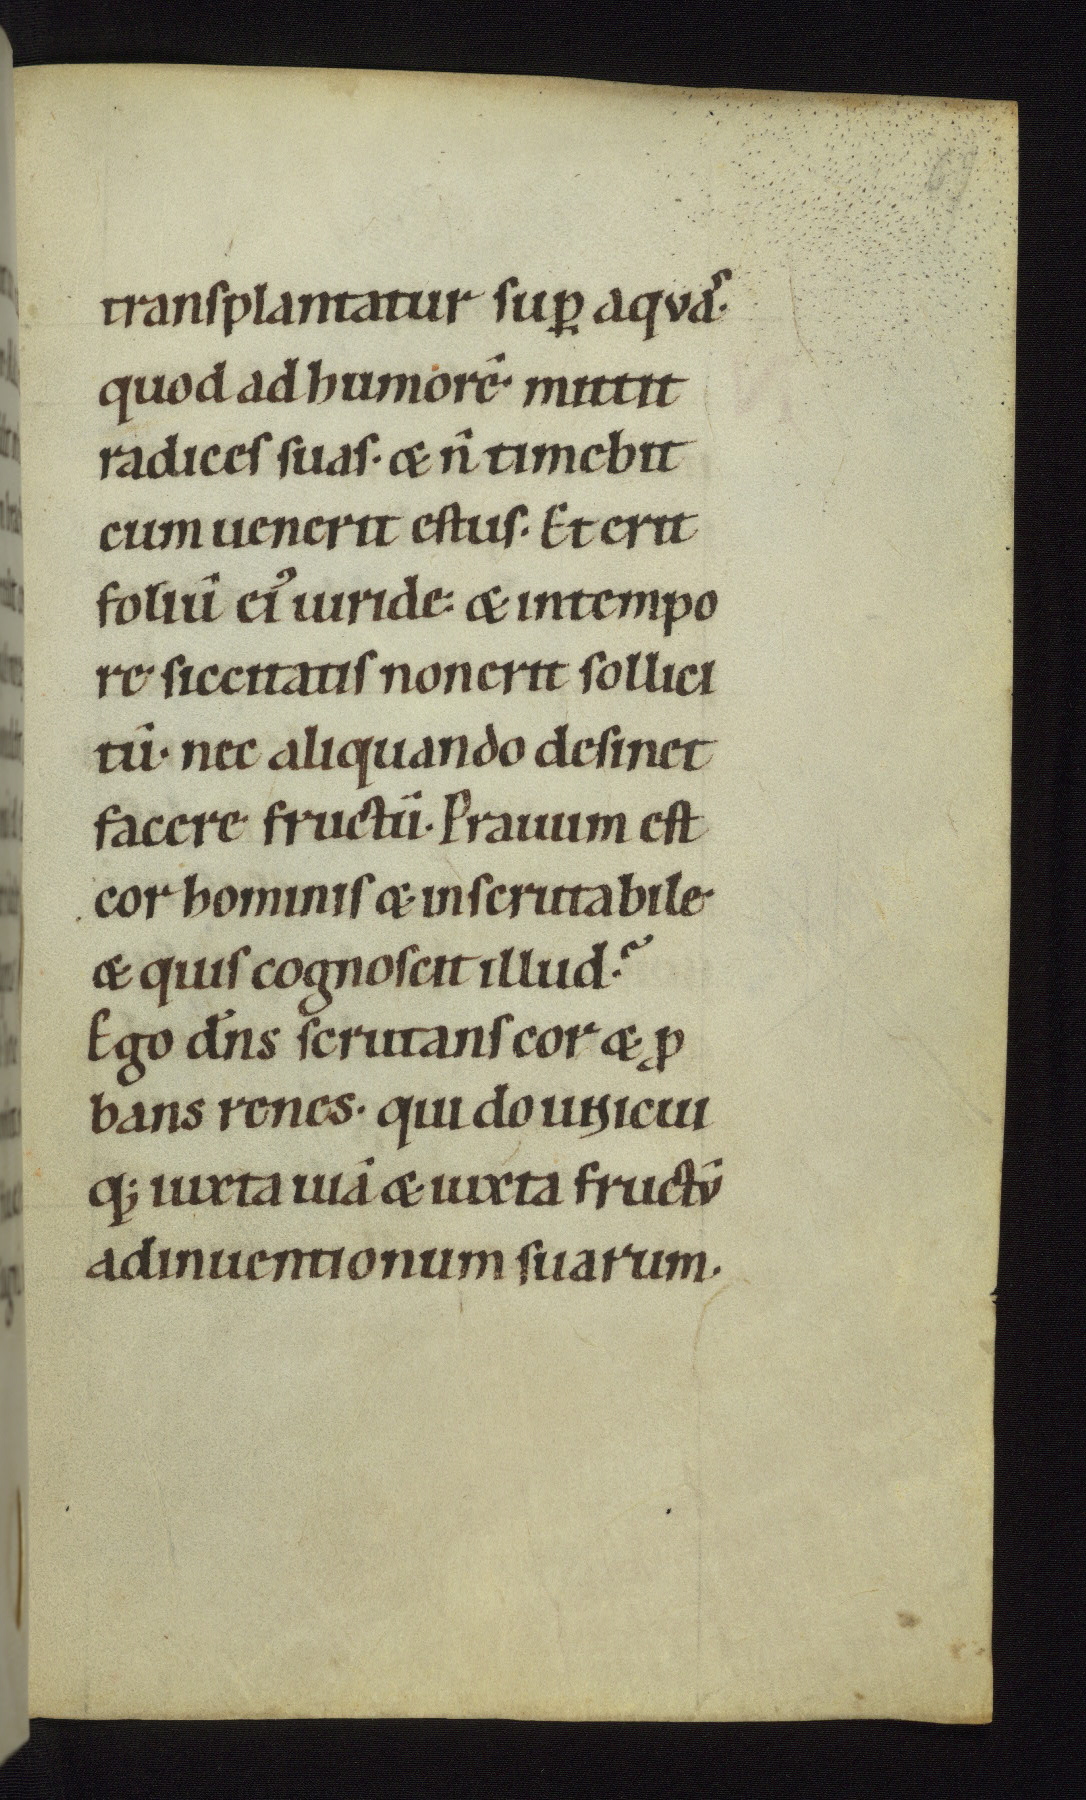 69
transplantatur suꝑ aqvas.
quod ad humorē mittit
radices suas. & n̄ timebit
cum uenerit estus. Et erit
foliū ei᾿ uiride: & in tempo
re siccitatis non erit sollici
tū. nec aliquando desinet
facere fructū. Prauum est
cor hominis & inscrutabile
& quis cognoscit illud.
Ego dn̄s scrutans cor & ꝓ
bans renes. qui do unicui
q; iuxta uiā & iuxta fructū
adinuentionum suarum.